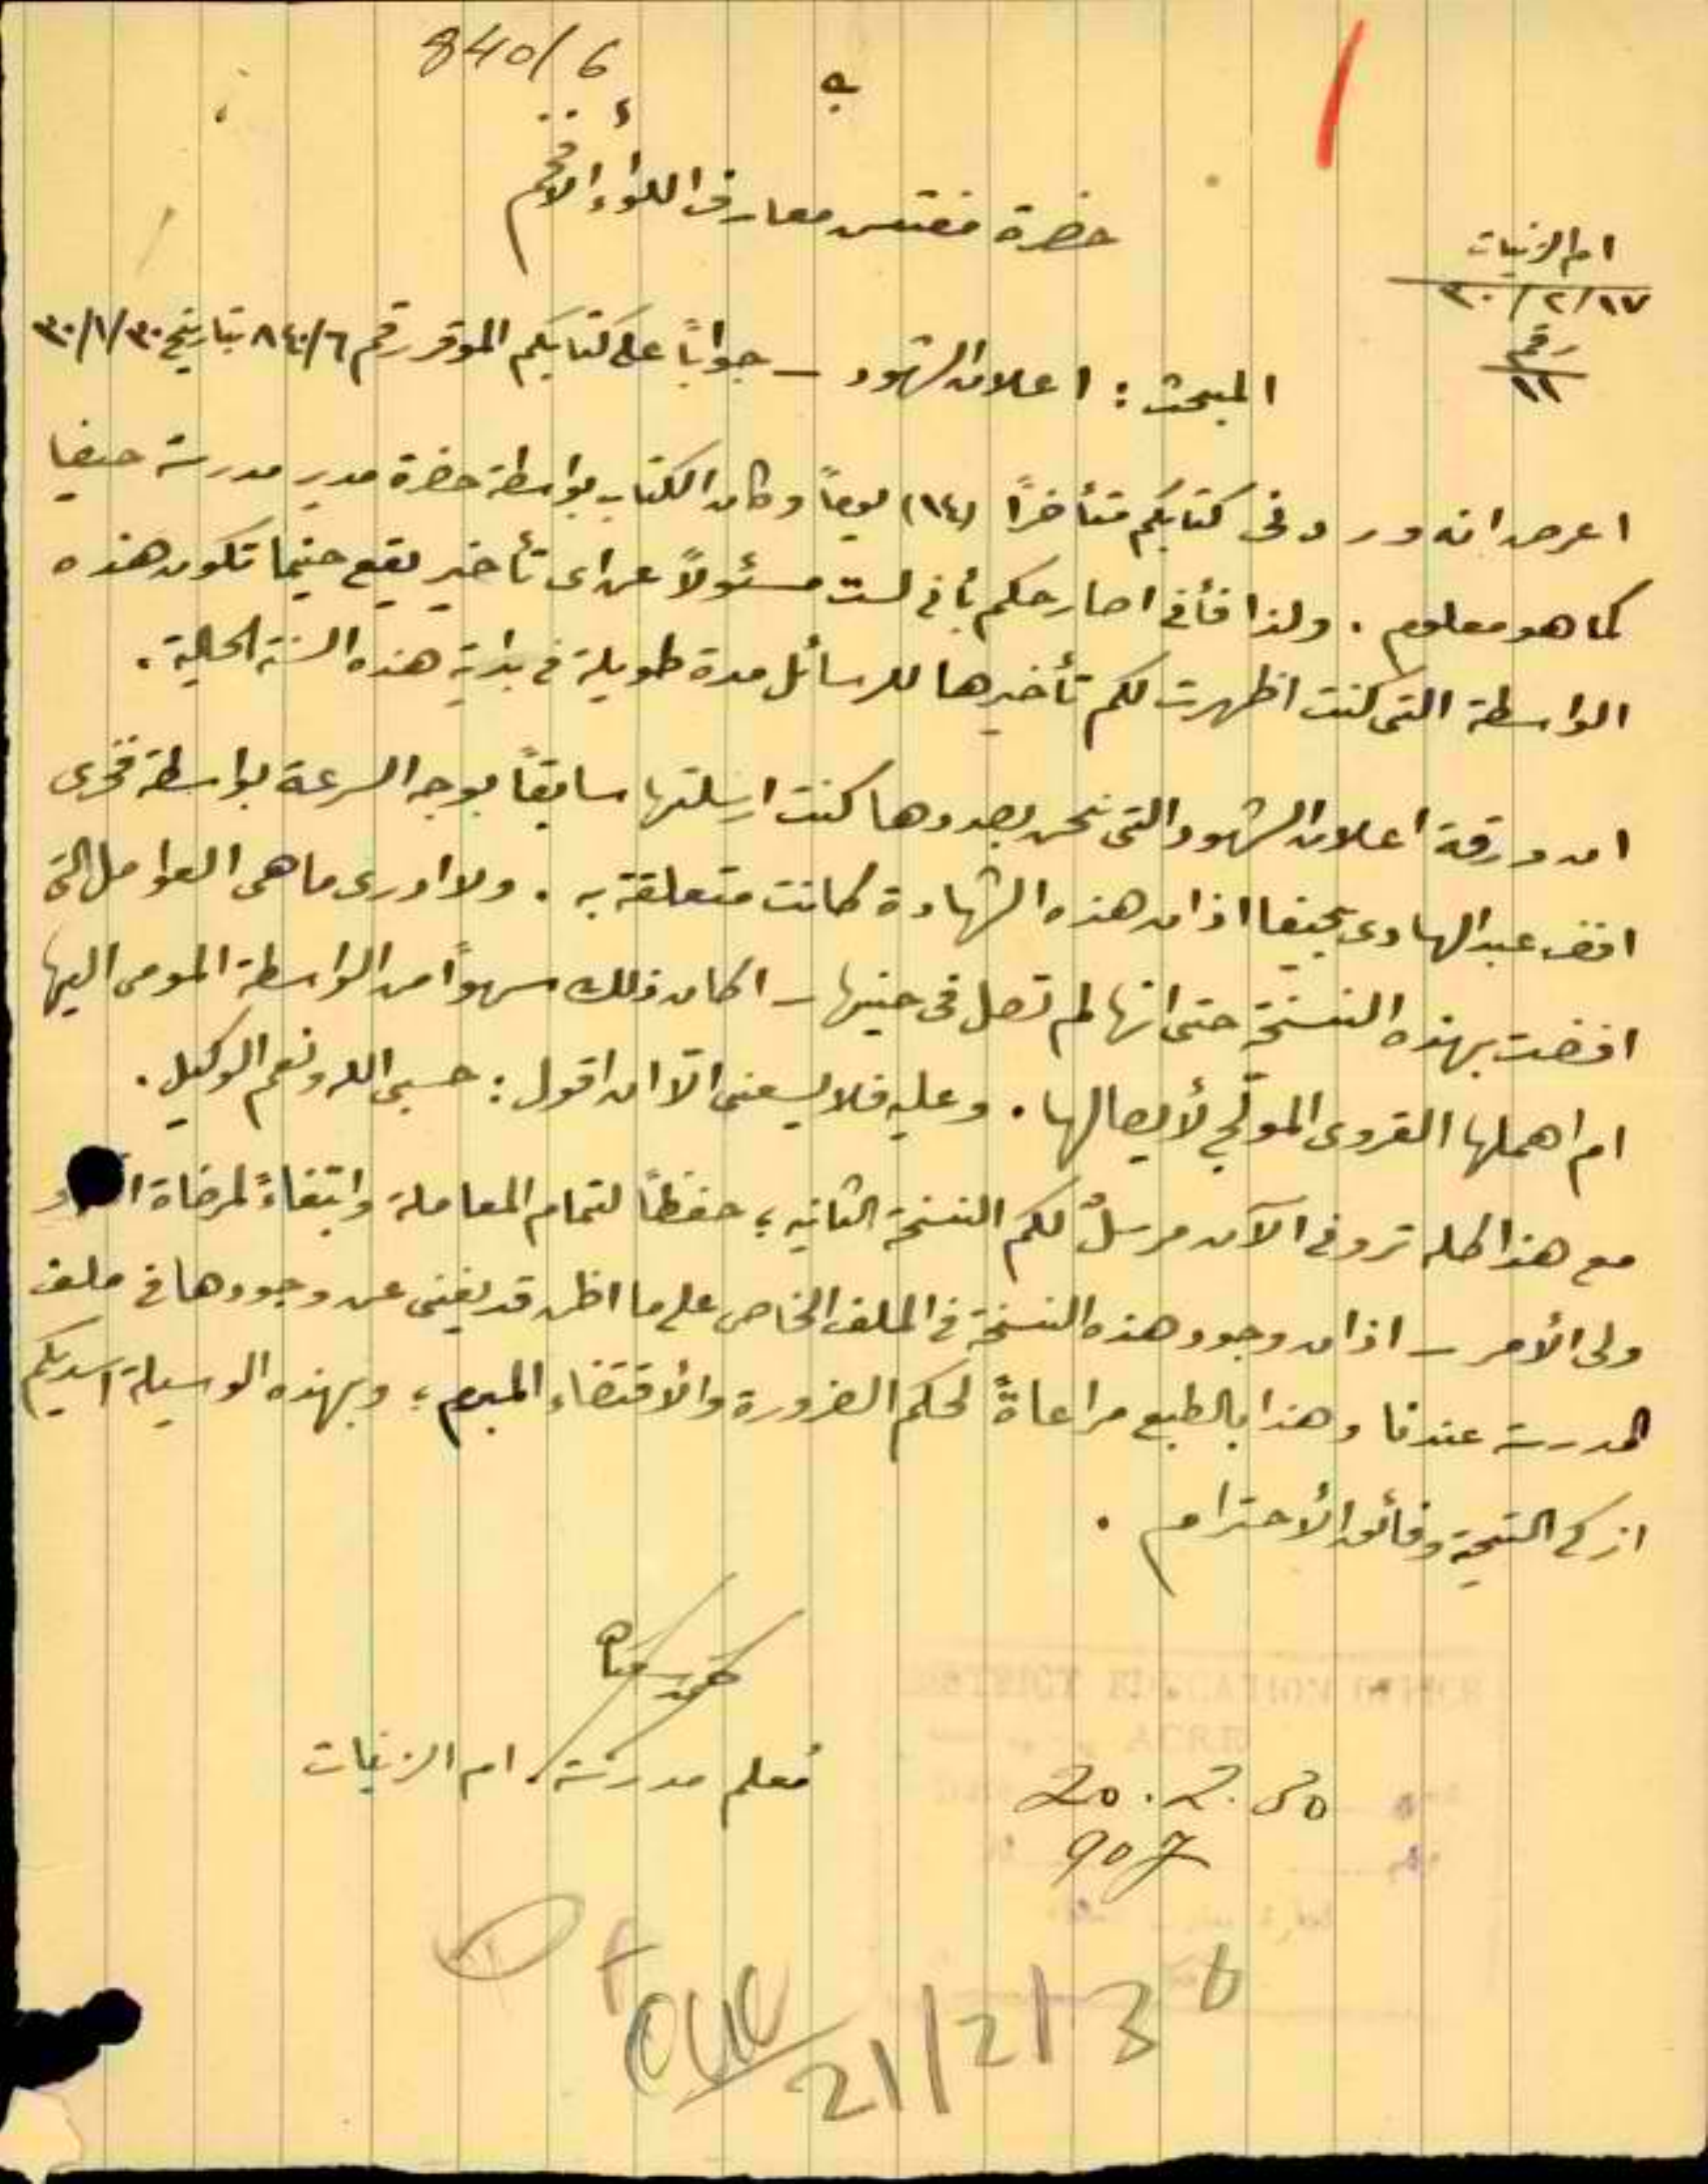 840/6
حضرة مفتش معارف اللواء الأفخم
ام الزينات
٣٠/٢/١٧
رقم
١١
المبحث : اعلان الشهود – جواباً على كتابكم الموقر رقم ٨٤٠/٦ بتاريخ ٣٠/١/٣٠
اعرض انه ورد في كتابكم متأخرًا (١٤) يوماً وكان الكتاب بواسطة حضرة مدير مدرسة حيفا
كما هو معلوم . ولذا فأني اصارحكم بأني لست مسئولاً عن اى تأخير يقع حينما تكون هذه
الواسطة التى كنت اظهرت لكم تأخيرها للرسائل مدة طويلة في بداية هذه السنة الحالية .
ان ورقة اعلان الشهود التى نحن بصددها كنت ارسلتها سابقاً بوجه السرعة بواسطة فخرى
افند عبد الهادى بحيفا اذ ان هذه الشهادة كانت متعلقة به . ولا ادرى ما هى العوامل التى
افضت بهذه النسخة حتى انها لم تصل فى حينها – اكان ذلك سهواً من الواسطة المومى اليها
ام اهملها القروى المولّج لأيصالها . وعليه فلا يسعنى الّا ان اقول : حسبى الله ونعم الوكيل .
مع هذا كله تروني الآن مرسلٌ لكم النسخة الثانيه ؛ حفظاً لتمام المعاملة وابتغاءً لمرضاة
ولى الأمر – اذ ان وجود هذه النسخة في الملف الخاص على ما اظن قد يغنى عن وجودها في ملف
المدرسة عندنا وهذا بالطبع مراعاةً لحكم الضرورة والأقتضاء المبرم ؛ وبهذه الوسيلة اسديكم
ازكى التحية وفائق الأحترام .
معلم مدرسة ام الزينات
DISTRICT EDUCATION OFFICE
ACRE
20.2.30
907
21/2/30